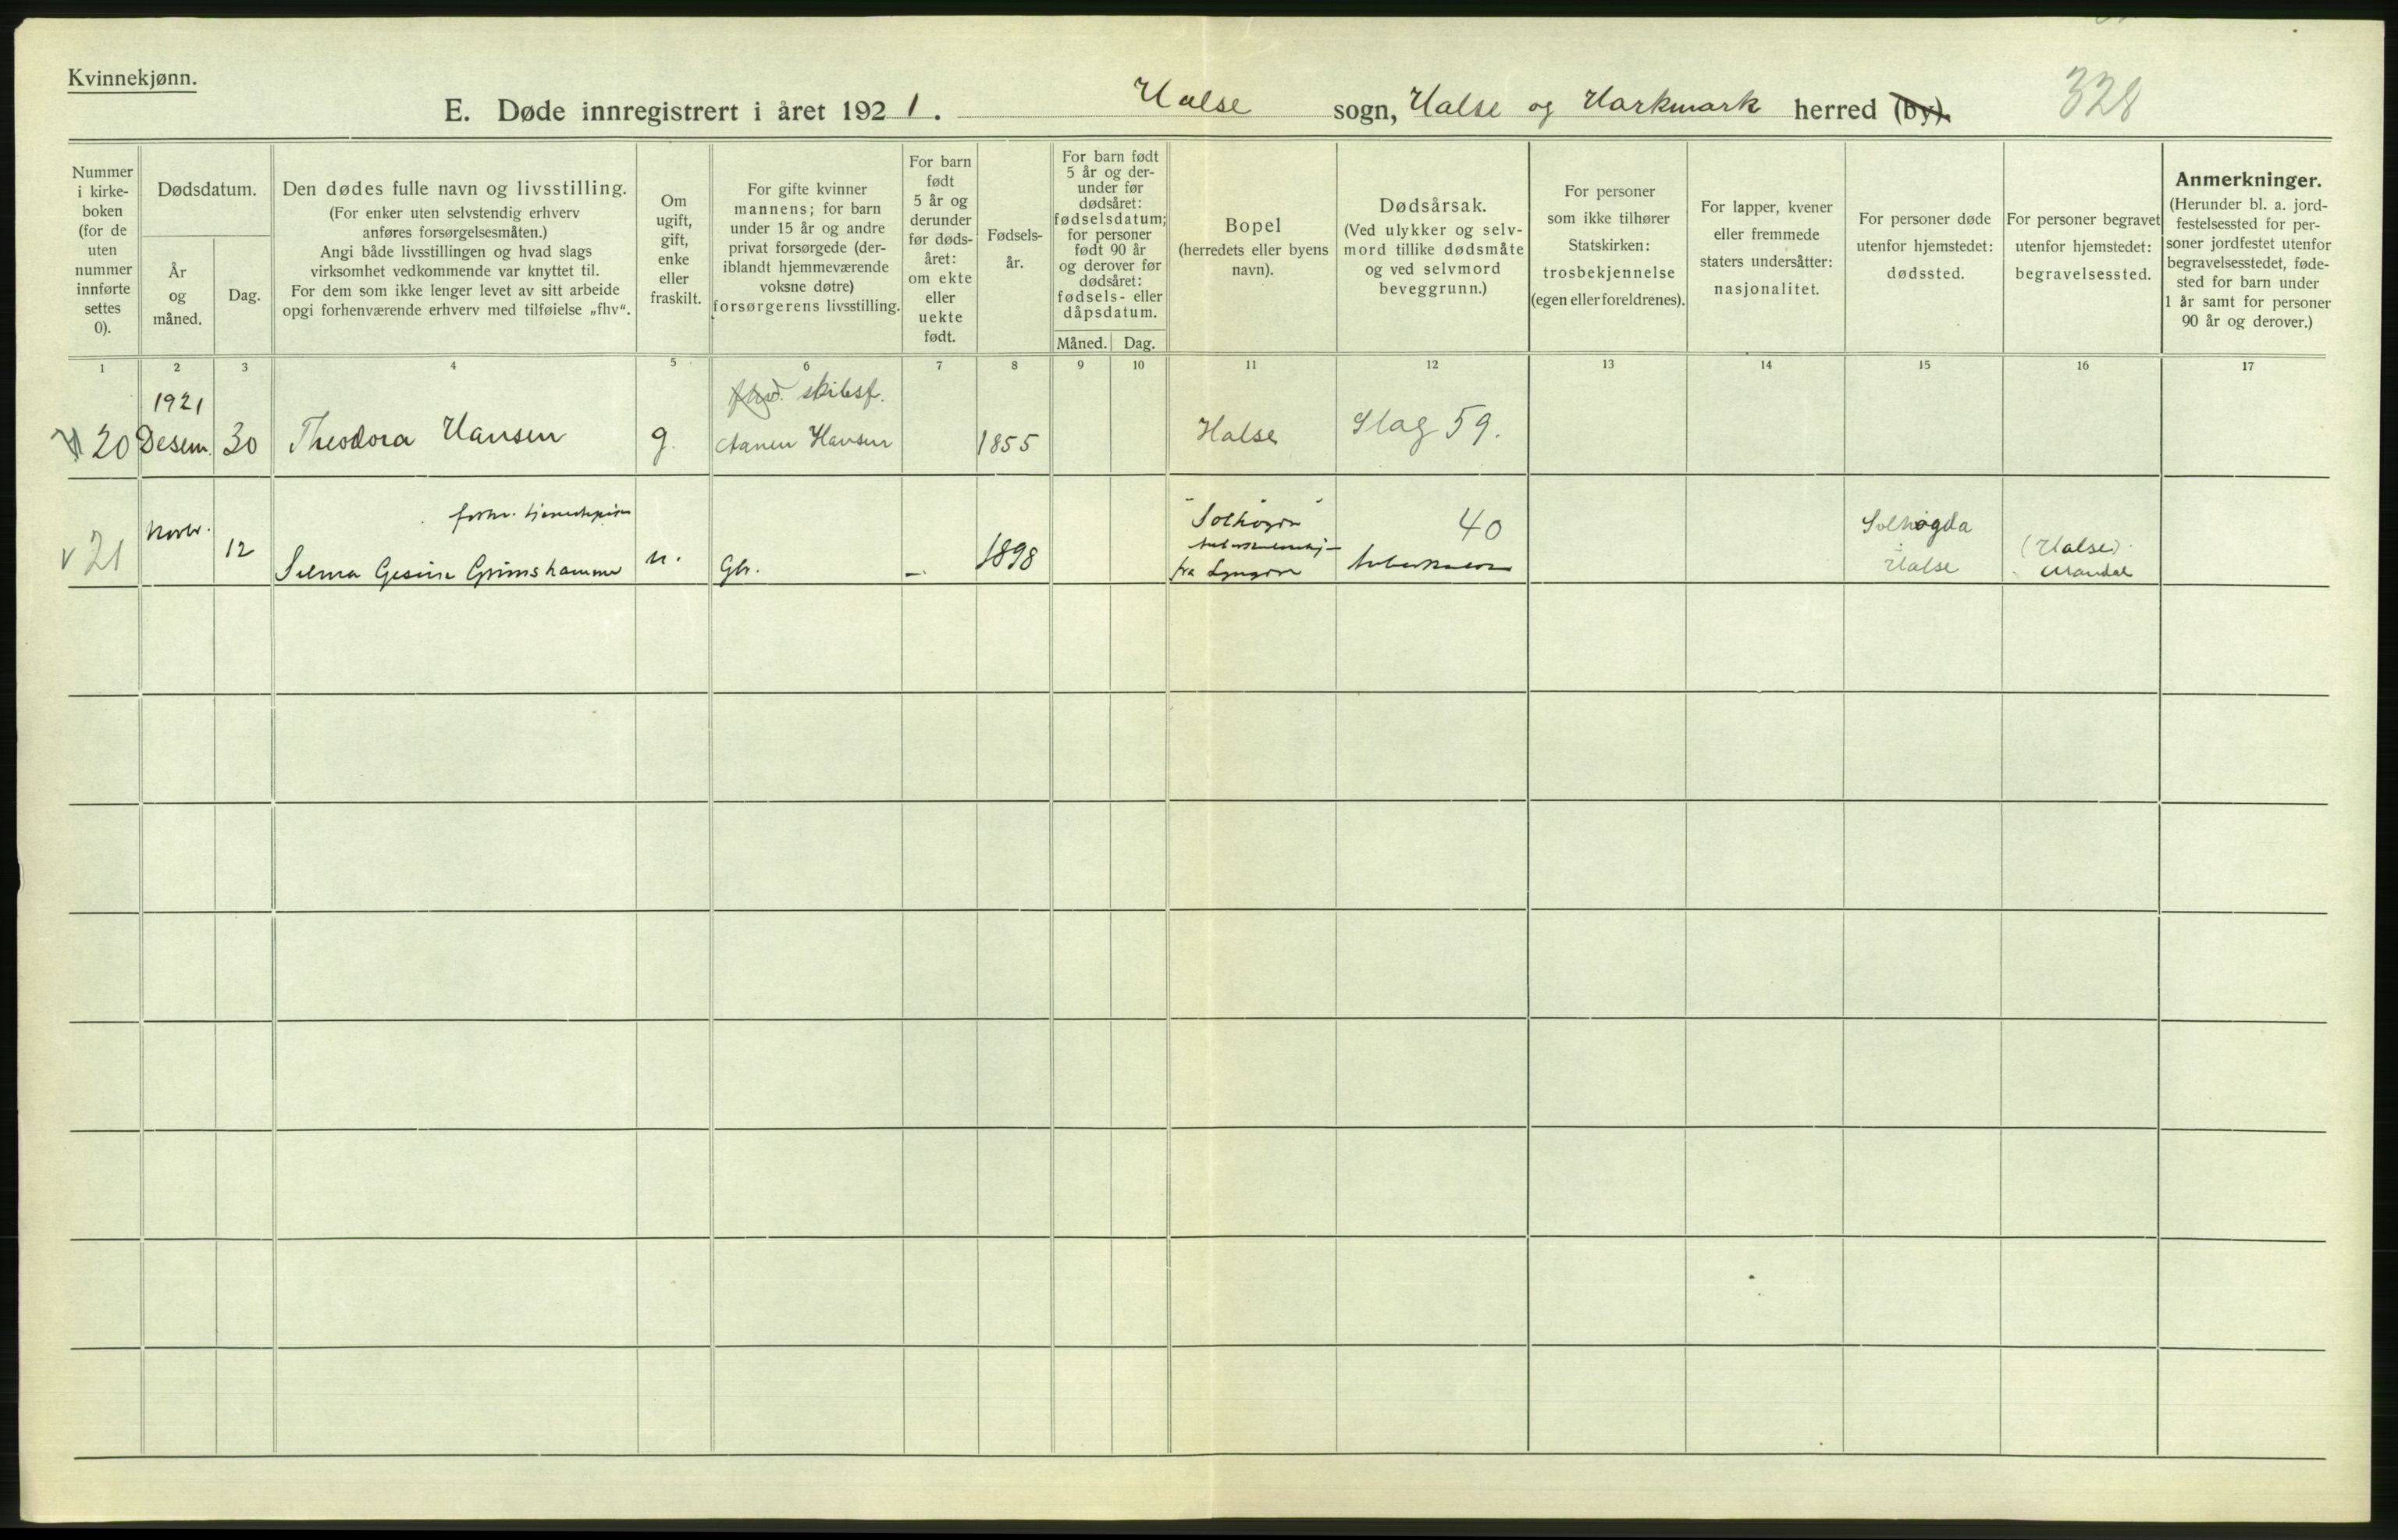 Kvinnekjønn.
E. Døde innregistrert i året 1921. Halse sogn, Halse og Harkmark herred (by).
328
Nummer
i kirke-
boken
(for de
uten
nummer
innførte
settes
0).
Dødsdatum.
År
og
måned.
Dag.
Den dødes fulle navn og livsstilling.
(For enker uten selvstendig erhverv
anføres forsørgelsesmåten.)
Angi både livsstillingen og hvad slags
virksomhet vedkommende var knyttet til.
For dem som ikke lenger levet av sitt arbeide
opgi forhenværende erhverv med tilføielse „fhv“.
Om
ugift,
gift,
enke
eller
fraskilt.
For gifte kvinner
mannens; for barn
under 15 år og andre
privat forsørgede (der-
iblandt hjemmeværende
voksne døtre)
forsørgerens livsstilling.
For barn
født
5 år og
derunder
før døds-
året:
om ekte
eller
uekte
født.
Fødsels-
år.
For barn født
5 år og der-
under før
dødsåret:
fødselsdatum;
for personer
født 90 år
og derover før
dødsåret:
fødsels- eller
dåpsdatum.
Måned. Dag.
Bopel
(herredets eller byens
navn).
Dødsårsak.
(Ved ulykker og selv-
mord tillike dødsmåte
og ved selvmord
beveggrunn.)
For personer
som ikke tilhører
Statskirken:
trosbekjennelse
(egen eller foreldrenes).
For lapper, kvener
eller fremmede
staters undersåtter:
nasjonalitet.
For personer døde
utenfor hjemstedet:
dødssted.
For personer begravet
utenfor hjemstedet:
begravelsessted.
Anmerkninger.
(Herunder bl. a. jord-
festelsessted for per-
soner jordfestet utenfor
begravelsesstedet, føde-
sted for barn under
1 år samt for personer
90 år og derover.)
1 2 3 4 5 6 7 8 9 10 11 12 13 14 15 16 17
1921 skibsf.
20 Desem. 30 Theodora Hansen g. Aanen Hansen 1855 Halse Slag 59.
forhv. tjenestepige "Solhøgda" 40 Solhøgda
v 21 Novbr. 12 u. Gbr. — 1898 (Halse)
Selma Gesine Grimshammer fra Lyngdal tuberkulose Halse Mandal